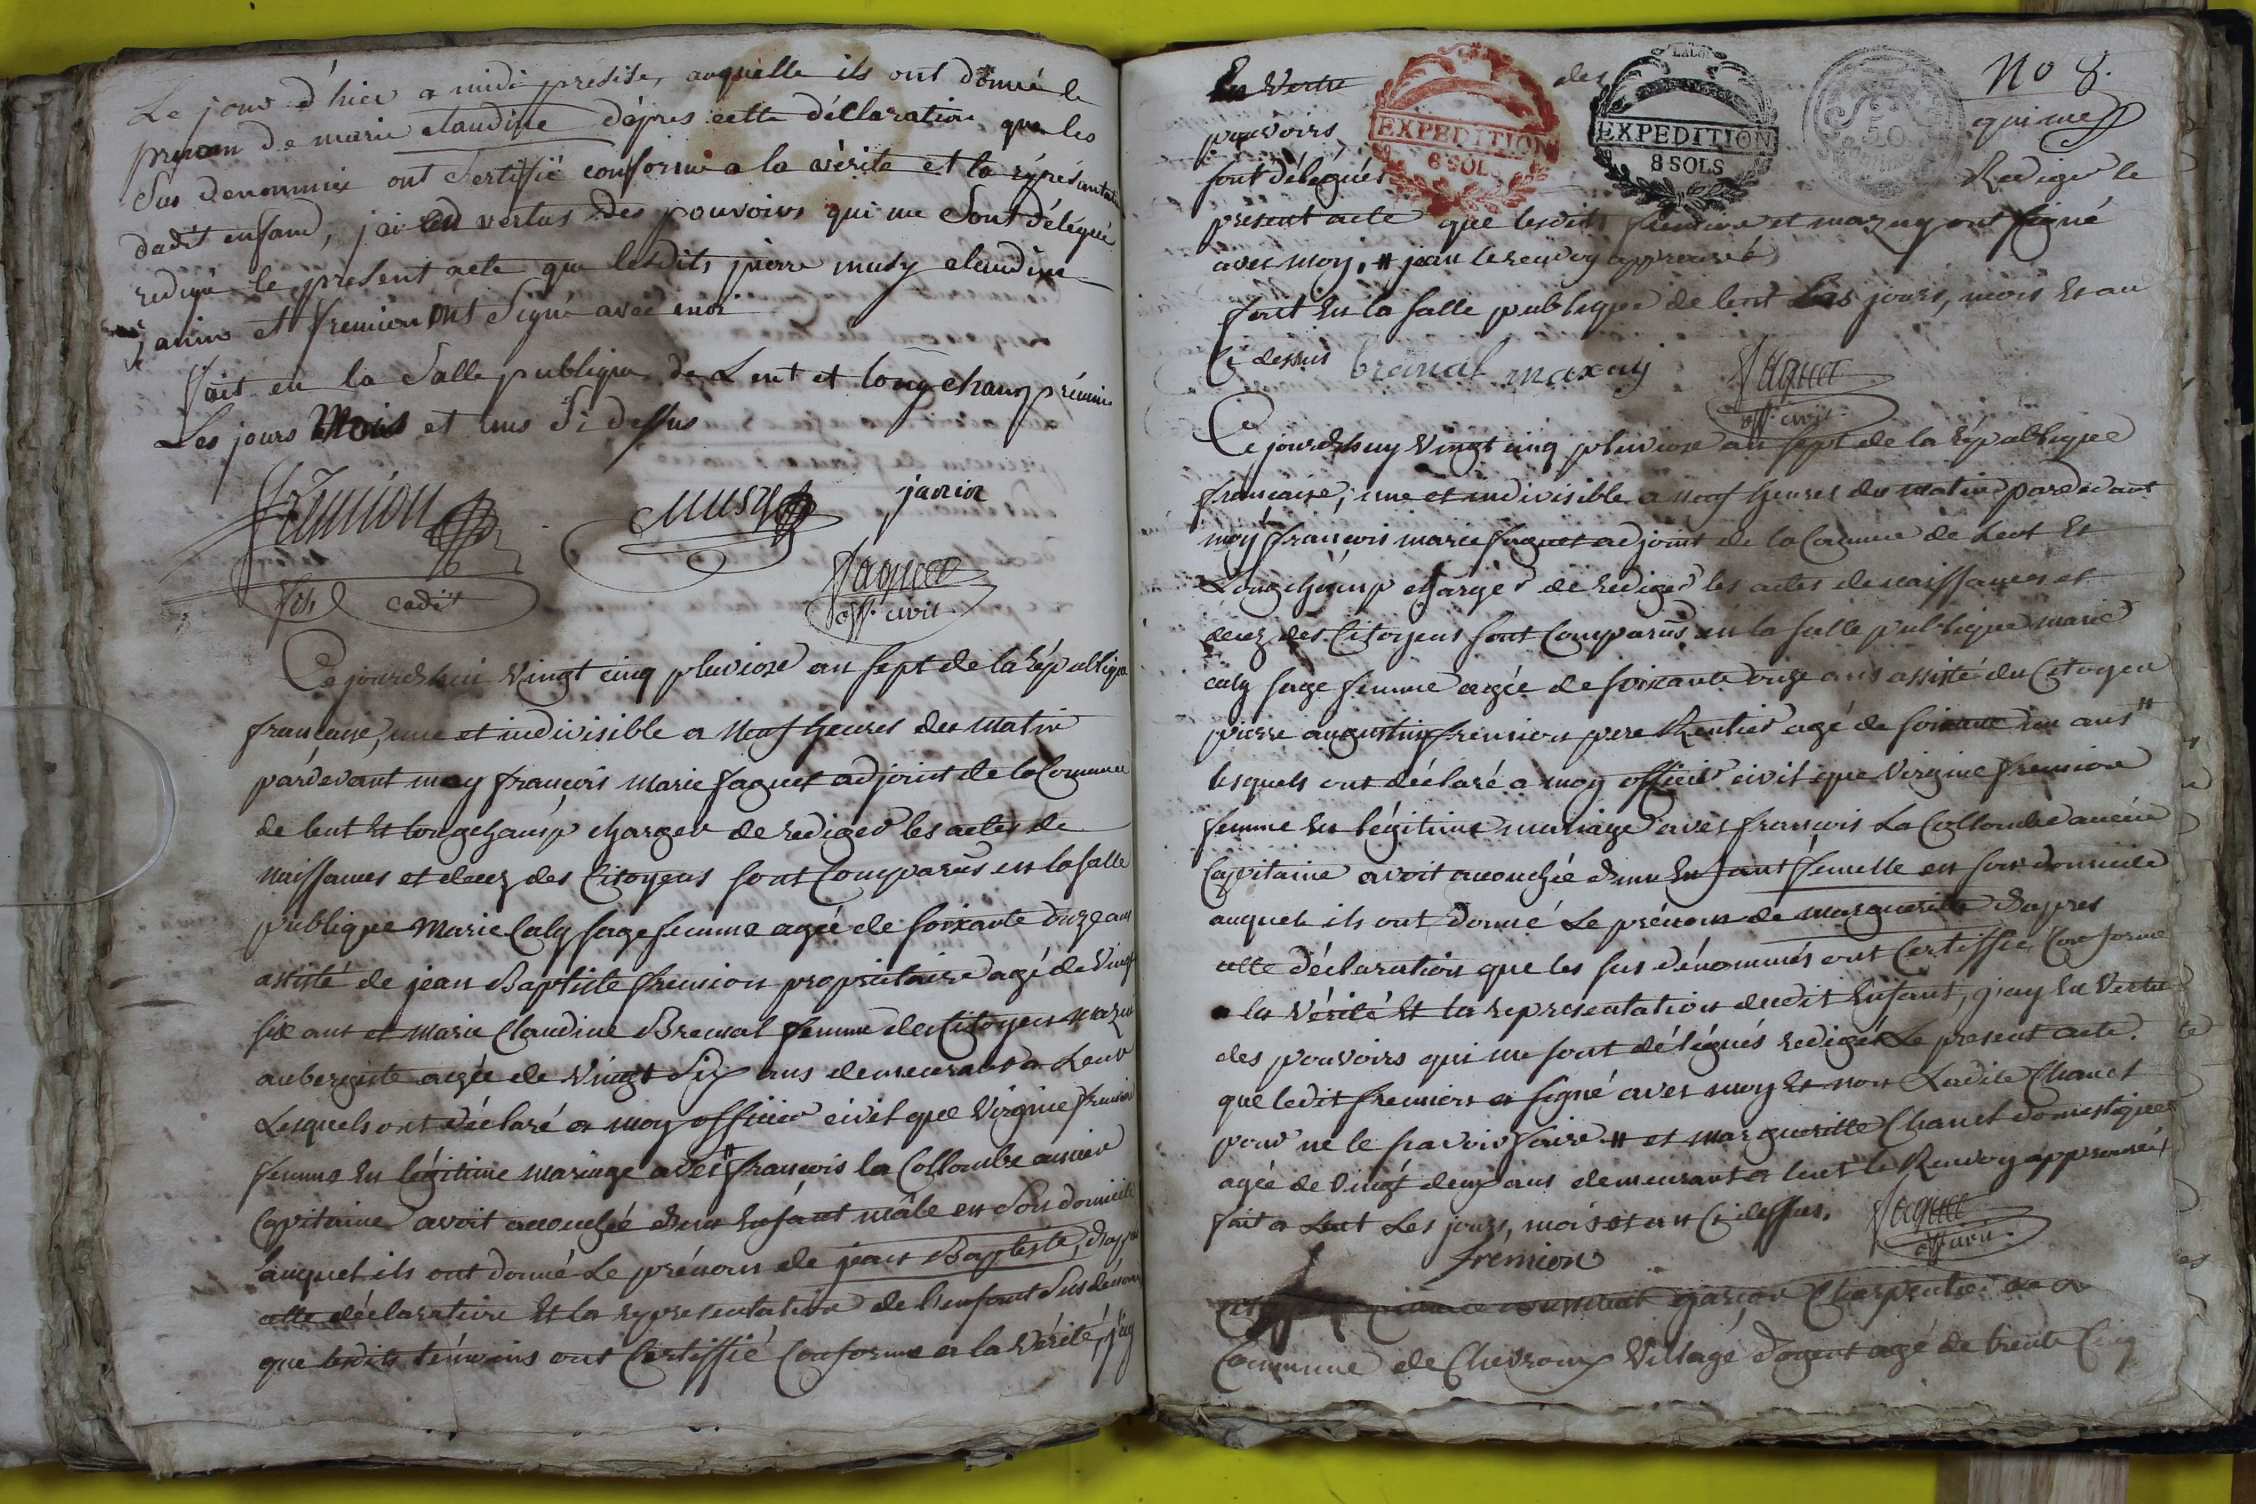 Le jour d'hier a midi presise, auquelle ils ont donné le
prenom de marie claudine d'épres cette déllaration que les
Sus denommés ont Sertiffié conforme a la vérite et la réprésentation
dudit enfand, j'ai en vertus des pouvoirs qui me Sont délégué
redigé le present acte que lesdits pierre musy claudine
janin et fremion ont Signé avec moi
fait en la Salle publique de Lent et longchamp réunis
Les jours Mois et ans Si dessus
fremion
musy
janin
fils cadit
faguet
off. civil
Ce jourdhui vingt cinq pluviose an sept de la République
française, une et indivisible a Neuf heures du matin
pardevant moy françois Marie faguet adjoint de la Commune
de lent et longchamp charger de rediger les actes de
Naissances et decez des Citoyens sont Comparus en la salle
publique Marie Caly sage femme agée de soixante onze ans
assisté de jean Baptiste fremion propriétaire agé de Vingt
six ans et marie Claudine Brenal femme du Citoyen Mazuy
aubergiste agée de vingt Six ans demeurant a Lent
Lesquels ont déclaré a moy officier civil que Virginie fremion
femme en légitime mariage avec françois la Collombe ancien
Capitaine avoit accouchée d'un Enfant mâle en Son domicile
auquel ils ont donné Le prénom de jean Baptiste, d'apres
cette déclaration et la representation de l'enfant Susdénommé
que lesdits témoins ont Certiffié Conforme a la Vérité, j'ay
En Vertu des No 8.
pouvoirs qui me
sont délégués Rediger le
present acte que lesdits fremion et mazuy ont signé
avec moy, # jean le renvoy approuvé
fait En la salle publique de lent Les jours, mois et an
Ci dessus brenal mazuy faguet
off. civil
EXPEDITION
8 SOLS
EXPEDITION
8 SOLS
50
Ce jourdhuy Vingt cinq pluviose an sept de la République
française, une et indivisible a neuf heures du matin pardevant
moy françois marie faguet adjoint de la Commune de Lent et
Longchamp charger de rediger les actes de naissances et
decez des Citoyens sont Comparus en la salle publique marie
caly sage femme agée de soixante onze ans assisté du Citoyen
pierre augustin fremion pere Rentier agé de soixante un ans #
lesquels ont déclaré a moy officier civil que Virginie fremion
femme En légitime mariage avec françois La Collombe ancien
Capitaine avoit accouchée d'un Enfant femelle en son domicile
auquel ils ont donné Le prénom de marguerite d'apres
cette déclaration que les sus dénommés ont Certiffié Conforme
a la Vérité et la representation dudit Enfant, j'ay En Vertu
des pouvoirs qui me sont délégués redigé Le present acte.
que ledit fremion a signé avec moy Et non Ladite Chanel
pour ne le savoir faire # et marguerite Chanel domestique
agée de vingt deux ans demeurant a lent le Renvoy approuvé
fait a Lent Les jours, mois et an Ci dessus. faguet
off. civil
fremion
garçon Charpentier de
Commune de Chevroux Village agé de trente Cinq